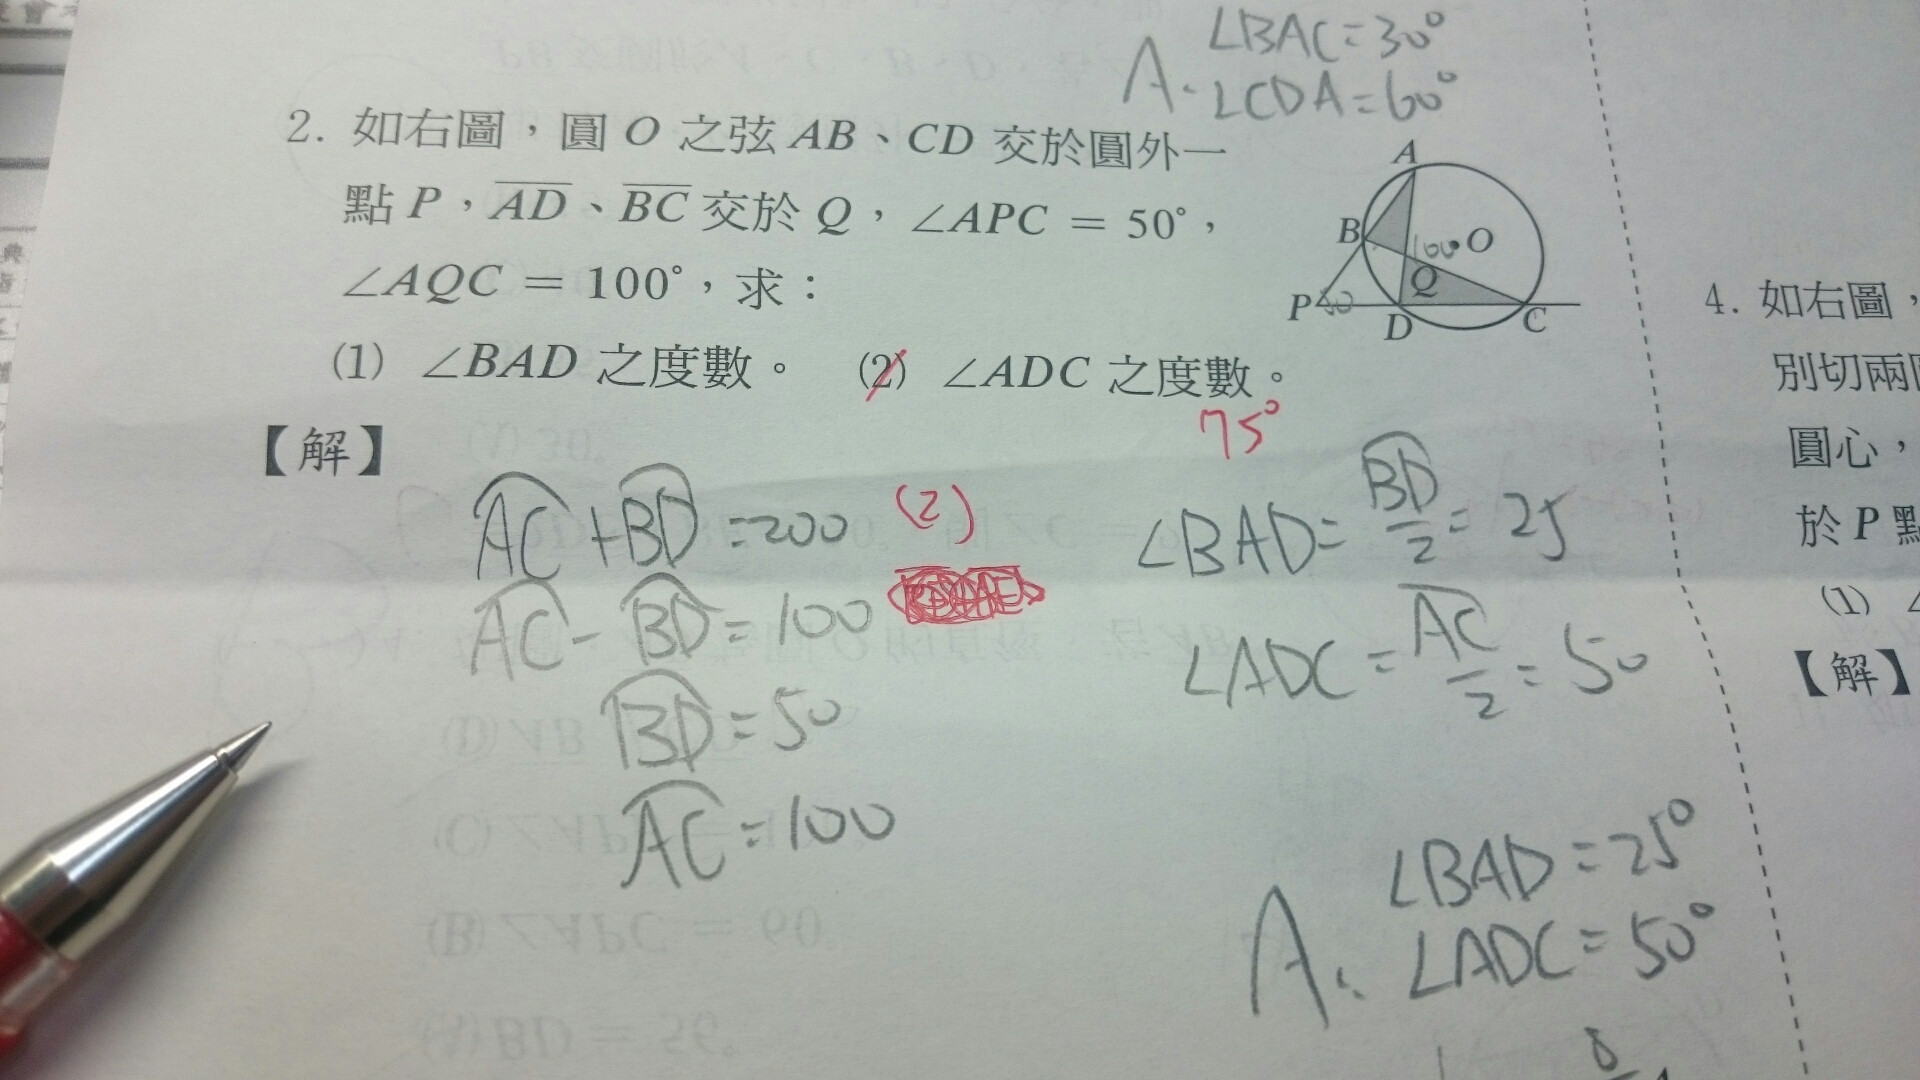 ∠BAC=30°
A. ∠CDA=60°
2. 如右圖，圓 O 之弦 AB、CD 交於圓外一
點 P，A̅D̅、B̅C̅ 交於 Q，∠APC = 50°，
∠AQC = 100°，求：
(1) ∠BAD 之度數。 (2) ∠ADC 之度數。
75°
A
B
100
O
Q
P
50
D
C
【解】
AC+BD=200
AC-BD=100
BD=50
AC=100
(2)
∠BAD=BD/2=25
∠ADC=AC/2=50
A. ∠BAD=25°
∠ADC=50°
4. 如右圖，
別切兩
圓心，
於 P 點
(1) ∠
【解】